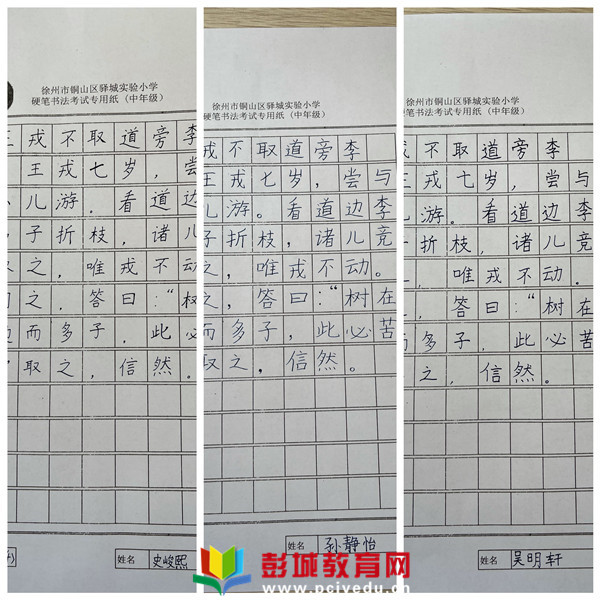 徐州市铜山区驿城实验小学
硬笔书法考试专用纸（中年级）
王戎不取道旁李
王戎七岁，尝
儿游，看道边
子折枝，诸儿
之，唯戎不动
之，答曰：“树
边而多子，此必
取之，信然。
姓名 史峻熙
徐州市铜山区驿城实验小学
硬笔书法考试专用纸（中年级）
戎不取道旁李
王戎七岁，尝与
儿游。看道边李
子折枝，诸儿竞
之，唯戎不动。
之，答曰：“树在
而多子，此必苦
取之，信然。
姓名 孙静怡
徐州市铜山区驿城实验小学
硬笔书法考试专用纸（中年级）
戎不取道旁李
王戎七岁，尝与
儿游。看道边李
折枝，诸儿竞
，唯戎不动。
，答曰：“树在
而多子，此必苦
之，信然。
姓名 吴明轩
彭城教育网
www.pcjyedu.cn